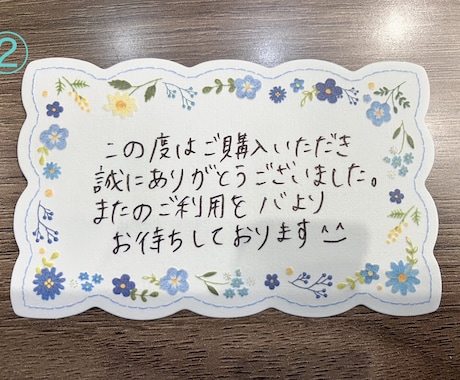 ②
この度はご購入いただき
誠にありがとうございました。
またのご利用を 心より
お待ちしております^^